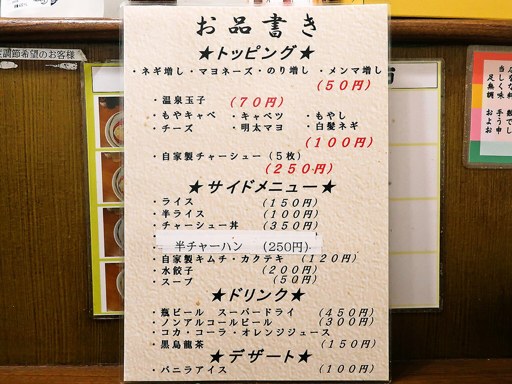 お品書き
★トッピング★
・ネギ増し・マヨネーズ・のり増し ・メンマ増し
(50円)
・温泉玉子 (70円)
・もやキャベ ・キャベツ ・もやし
・チーズ ・明太マヨ ・白髪ネギ
(100円)
・自家製チャーシュー(5枚)
(250円)
★サイドメニュー★
・ライス (150円)
・半ライス (100円)
・チャーシュー丼 (350円)
半チャーハン (250円)
・自家製キムチ・カクテキ (120円)
・水餃子 (200円)
・スープ (50円)
★ドリンク★
・瓶ビール スーパードライ (450円)
・ノンアルコールビール (300円)
・コカ・コーラ・オレンジジュース
・黒烏龍茶 (150円)
★デザート★
・バニラアイス (100円)
調節希望のお客様